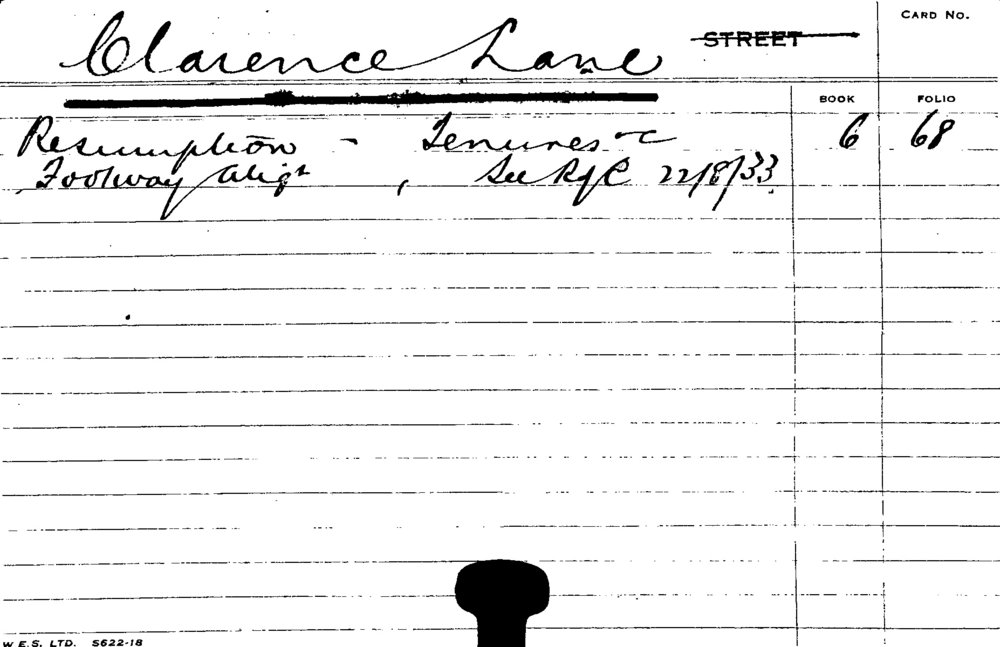 CARD NO.
Clarence Lane STREET
BOOK FOLIO
Resumption - Tenures &c 6 68
Footway Alignt , See R of C 22/8/33
W.E.S. LTD. S622-18